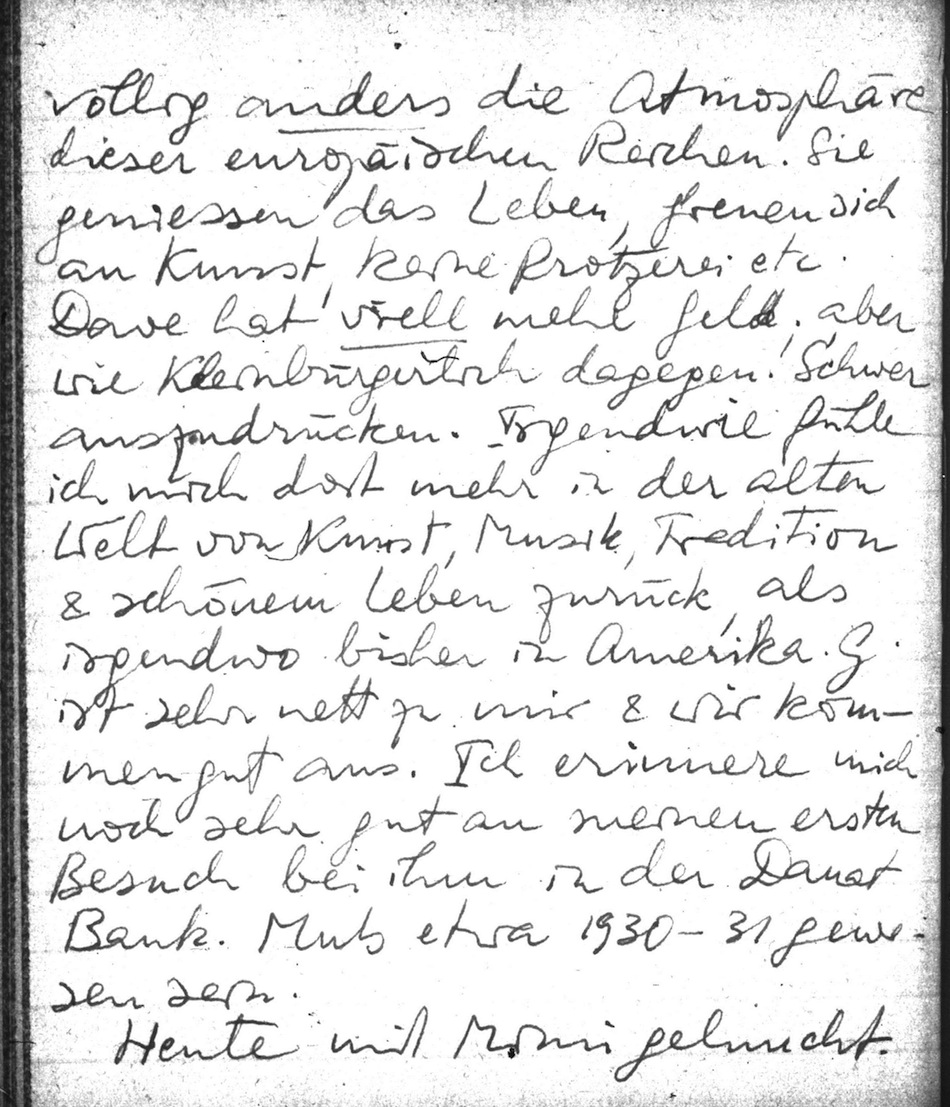 völlig anders die Atmosphäre
dieser europäischen Reichen. Sie
geniessen das Leben, freuen sich
an Kunst, keine Protzerei etc.
Dave hat viell mehr Geld, aber
wie kleinbürgerlich dagegen! Schwer
auszudrücken. Irgendwie fühle
ich mich dort mehr in der alten
Welt von Kunst, Musik, Tradition
& schönem Leben zurück, als
irgendwo bisher in Amerika. G.
ist sehr nett zu mir & wir kom-
men gut aus. Ich erinnere mich
noch sehr gut an meinen ersten
Besuch bei ihm in der Danat
Bank. Muss etwa 1930–31 gewe-
sen sein.
Heute mit geluncht.